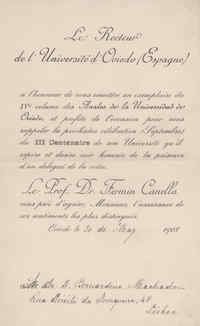 Le Recteur
de l'Université d'Oviedo (Espagne)
a l'honneur de vous remettre un exemplaire du
IVe volume des Anales de la Universidad de
Oviedo, et profite de l'occasion pour vous
rappeler la prochaine célébration (Septembre)
du III Centenaire de son Université qu'il
espère et désire voir honorée de la présence
d'un délégué de la votre.
Le Prof. D. Fermin Canella
vous prie d'agréer, Monsieur, l'assurance de
ses sentiments les plus distingués.
Oviedo le 30 de May 1908
Mr. Dr. D. Bernardino Machado
Lisboa